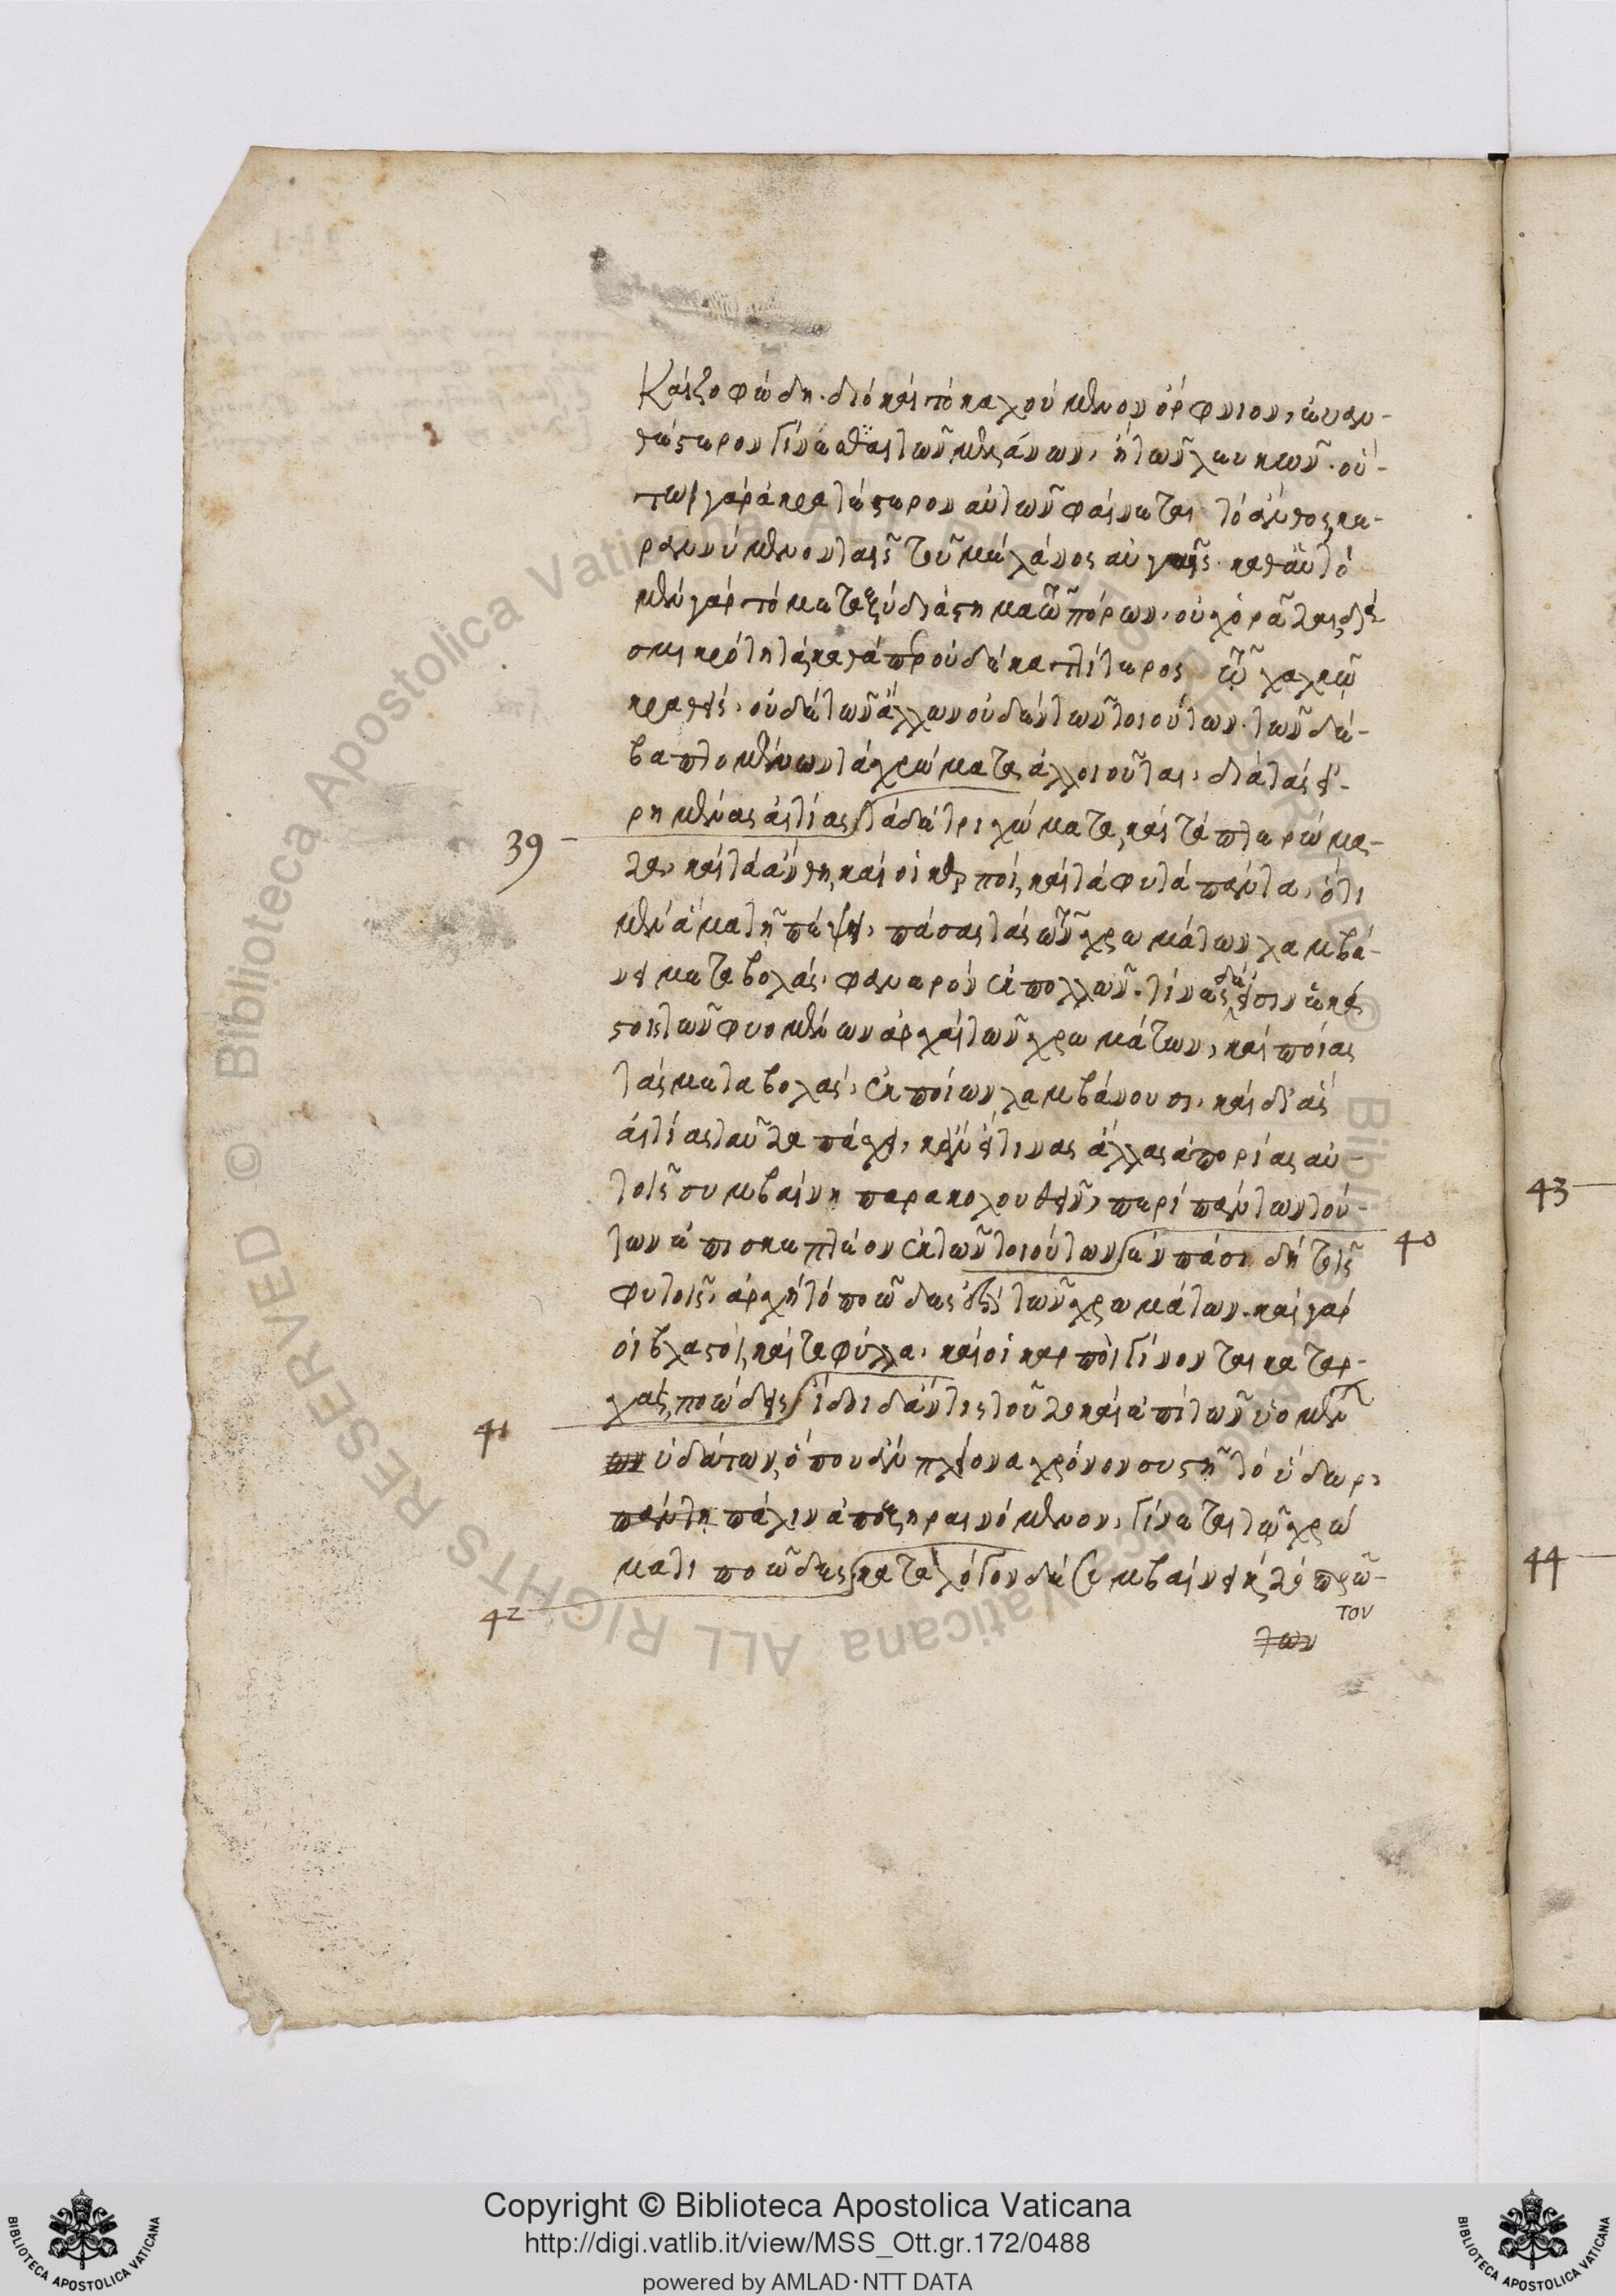 Καὶ ζοφώδη. διὸ καὶ τὸ καλούμενον ὄρφνιον, εὐαν-
θέστερον γίνεσθαι τῶν μελάνων, ἢ τῶν λευκῶν. οὕ-
τω γὰρ ἀκρατέστερον αὐτῶν φαίνεται τὸ ἄνθος, κε-
ραννύμενον ταῖς τοῦ μέλανος αὐγαῖς. καθ' αὑτὸ
μὲν γὰρ τὸ μεταξὺ διάστημα τῶν πόρων, οὐχ ὁρᾶται διὰ
σμικρότητα, καθάπερ οὐδὲ καττίτερος τῷ χαλκῷ
κραθείς, οὐδὲ τῶν ἄλλων οὐδὲν τῶν τοιούτων. τῶν δὲ-
βαπτομένων τὰ χρώματα ἀλλοιοῦται, διὰ τὰς εἰ-
ρημένας αἰτίας
39
τὰ δὲ τριχώματα, καὶ τὰ πτερώμα-
τα, καὶ τὰ ἄνθη, καὶ οἱ καρποὶ, καὶ τὰ φυτὰ πάντα, ὅτι
μὲν ἅμα τῇ πέψει, πάσας τὰς τῶν χρωμάτων λαμβά-
νει μεταβολὰς, φανερὸν ἐκ πολλῶν. τίνες δὲ εἰσὶν ἑκά
στοις τῶν φυομένων ἀρχαὶ τῶν χρωμάτων, καὶ ποίας
τὰς μεταβολὰς, ἐκ ποίων λαμβάνουσι, καὶ δι' ἃς
αἰτίας ταῦτα πάσχει, κἂν εἴ τινας ἄλλας ἀπορίας αὐ-
τοῖς συμβαίνῃ παρακολουθεῖν, περὶ πάντων τού-
των ἐπισκεπτέον ἐκ τῶν τοιούτων
ἐν πᾶσι δὴ τοῖς
40
φυτοῖς, ἀρχὴ τὸ ποῶδες ἐστὶ τῶν χρωμάτων. καὶ γὰρ
οἱ βλαστοὶ, καὶ τὰ φύλλα, καὶ οἱ καρποὶ γίνονται κατ' ἀρ-
χὰς, ποώδεις
41
ἴδοι δ' ἄν τις τοῦτο καὶ ἐπὶ τῶν ὑομέν
ων ὑδάτων, ὅπου ἂν πλείονα χρόνον συστῇ τὸ ὕδωρ,
πάντη πάλιν ἀποξηραινόμενον, γίνεται τῷ χρώ
ματι ποῶδες
42
κατὰ λόγον δὲ συμβαίνει καὶ τὸ πρῶ-
τον
των
43
44
Copyright © Biblioteca Apostolica Vaticana
http://digi.vatlib.it/view/MSS_Ott.gr.172/0488
powered by AMLAD·NTT DATA
BIBLIOTECA APOSTOLICA VATICANA
BIBLIOTECA APOSTOLICA VATICANA
© Biblioteca Apostolica Vaticana ALL RIGHTS RESERVED